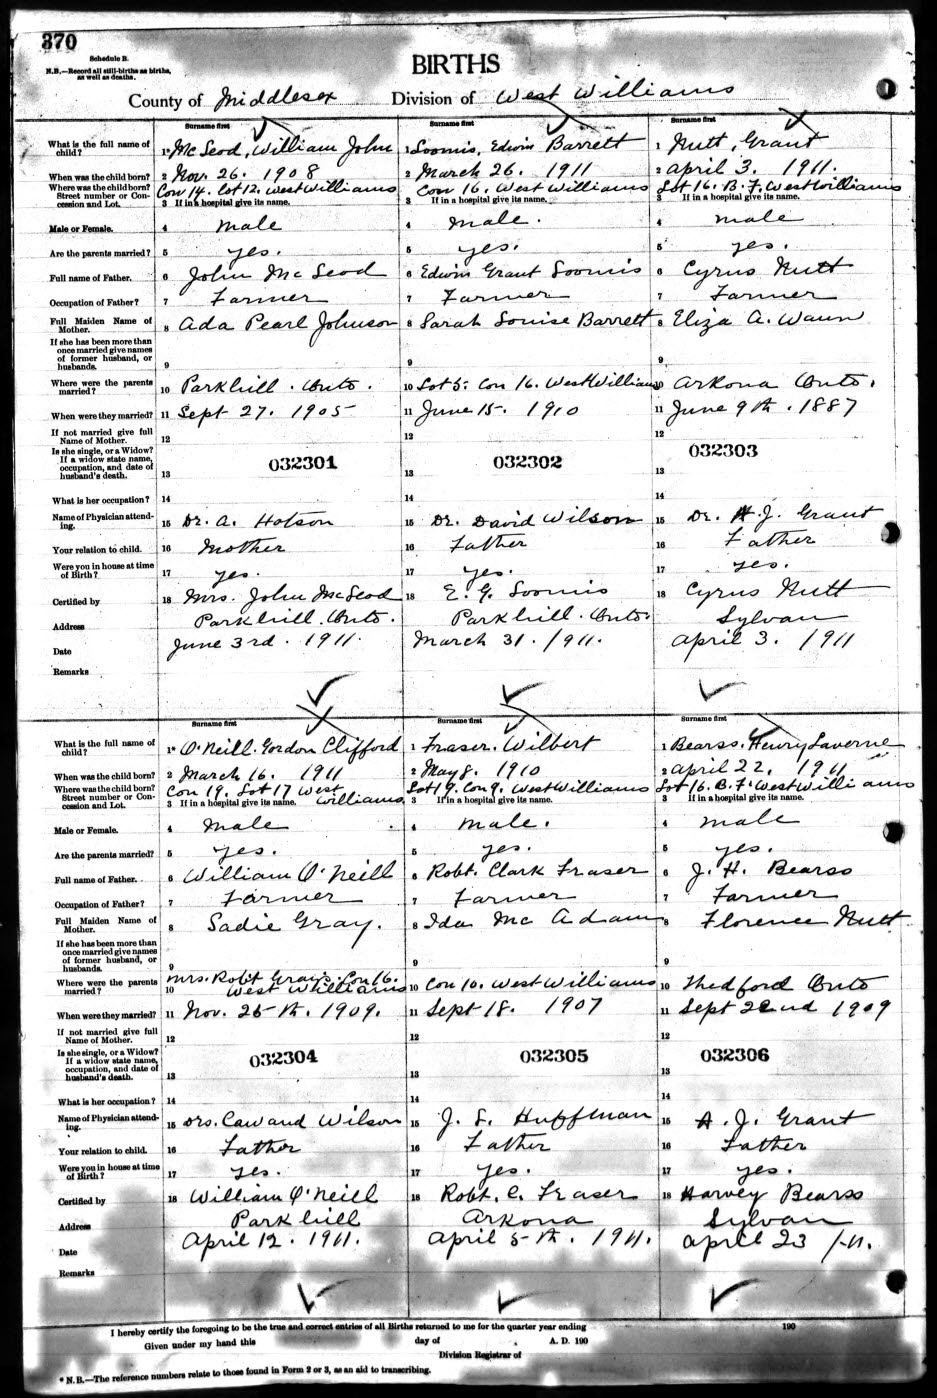 370
Schedule B.
N.B.—Record all still-births as births, as well as deaths.
BIRTHS
County of Middlesex Division of West Williams
Surname first Surname first Surname first
What is the full name of child? 1* McLeod, William John 1 Loomis, Edwin Barrett 1 Nutt, Grant
When was the child born? 2 Nov. 26. 1908 2 March 26. 1911 2 April 3. 1911.
Where was the child born? Street number or Concession and Lot. Con 14. Lot 12. West Williams Con 16. West Williams Lot 16. B. F. West Williams
3 If in a hospital give its name. 3 If in a hospital give its name. 3 If in a hospital give its name.
Male or Female. 4 Male 4 Male. 4 Male
Are the parents married? 5 yes. 5 yes. 5 yes.
Full name of Father. 6 John McLeod 6 Edwin Grant Loomis 6 Cyrus Nutt
Occupation of Father? 7 Farmer 7 Farmer 7 Farmer
Full Maiden Name of Mother. 8 Ada Pearl Johnson 8 Sarah Louise Barrett 8 Eliza A. Waun
If she has been more than once married give names of former husband, or husbands. 9 9 9
Where were the parents married? 10 Parkhill. Onto. 10 Lot 5. Con 16. West Williams 10 Arkona Onto.
When were they married? 11 Sept 27. 1905 11 June 15. 1910 11 June 9th. 1887
If not married give full Name of Mother. 12 12 12
Is she single, or a Widow? If a widow state name, occupation, and date of husband's death. 13 032301 13 032302 13 032303
What is her occupation? 14 14 14
Name of Physician attending. 15 Dr. A. Hotson 15 Dr. David Wilson 15 Dr. A. J. Grant
Your relation to child. 16 Mother 16 Father 16 Father
Were you in house at time of Birth? 17 yes. 17 yes. 17 yes.
Certified by 18 Mrs. John McLeod 18 E. G. Loomis 18 Cyrus Nutt
Address Parkhill. Onto. Parkhill. Onto. Sylvan
Date June 3rd. 1911. March 31. 1911. April 3. 1911
Remarks
Surname first Surname first Surname first
What is the full name of child? 1* O'Neill. Gordon Clifford 1 Fraser. Wilbert 1 Bearss. Henry Laverne
When was the child born? 2 March 16. 1911 2 May 8. 1910 2 April 22. 1911
Where was the child born? Street number or Concession and Lot. Con 19. Lot 17 West Williams Lot 19. Con 9. West Williams Lot 16. B. F. West Williams
3 If in a hospital give its name. 3 If in a hospital give its name. 3 If in a hospital give its name.
Male or Female. 4 Male 4 Male. 4 Male
Are the parents married? 5 yes. 5 yes. 5 yes.
Full name of Father. 6 William O'Neill 6 Robt. Clark Fraser 6 J. H. Bearss
Occupation of Father? 7 Farmer 7 Farmer 7 Farmer
Full Maiden Name of Mother. 8 Sadie Gray. 8 Ida McAdam 8 Florence Nutt
If she has been more than once married give names of former husband, or husbands. 9 9 9
Where were the parents married? 10 Mrs. Robt Con 16. West Williams 10 Con 10. West Williams 10 Thedford Onto
When were they married? 11 Nov. 25th. 1909. 11 Sept 18. 1907 11 Sept 22nd 1909
If not married give full Name of Mother. 12 12 12
Is she single, or a Widow? If a widow state name, occupation, and date of husband's death. 13 032304 13 032305 13 032306
What is her occupation? 14 14 14
Name of Physician attending. 15 Drs. Caw and Wilson 15 J. S. Huffman 15 A. J. Grant
Your relation to child. 16 Father 16 Father 16 Father
Were you in house at time of Birth? 17 yes. 17 yes. 17 yes.
Certified by 18 William O'Neill 18 Robt. C. Fraser 18 Harvey Bearss
Address Parkhill Arkona Sylvan
Date April 12. 1911. April 5th. 1911. April 23 /-11.
Remarks
I hereby certify the foregoing to be the true and correct entries of all Births returned to me for the quarter year ending 190
Given under my hand this day of A. D. 190
Division Registrar of
* N.B.—The reference numbers relate to those found in Form 2 or 3, as an aid to transcribing.